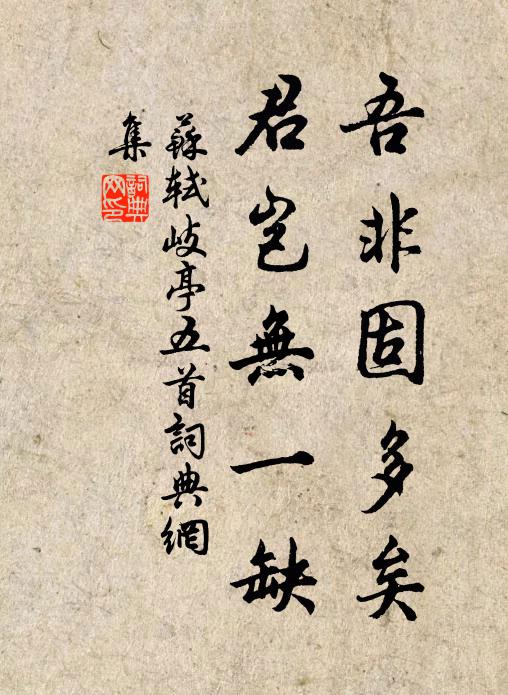 吾非固多矣
君岂無一缺
蘇軾岐亭五首詞典網
集
詞典
网印